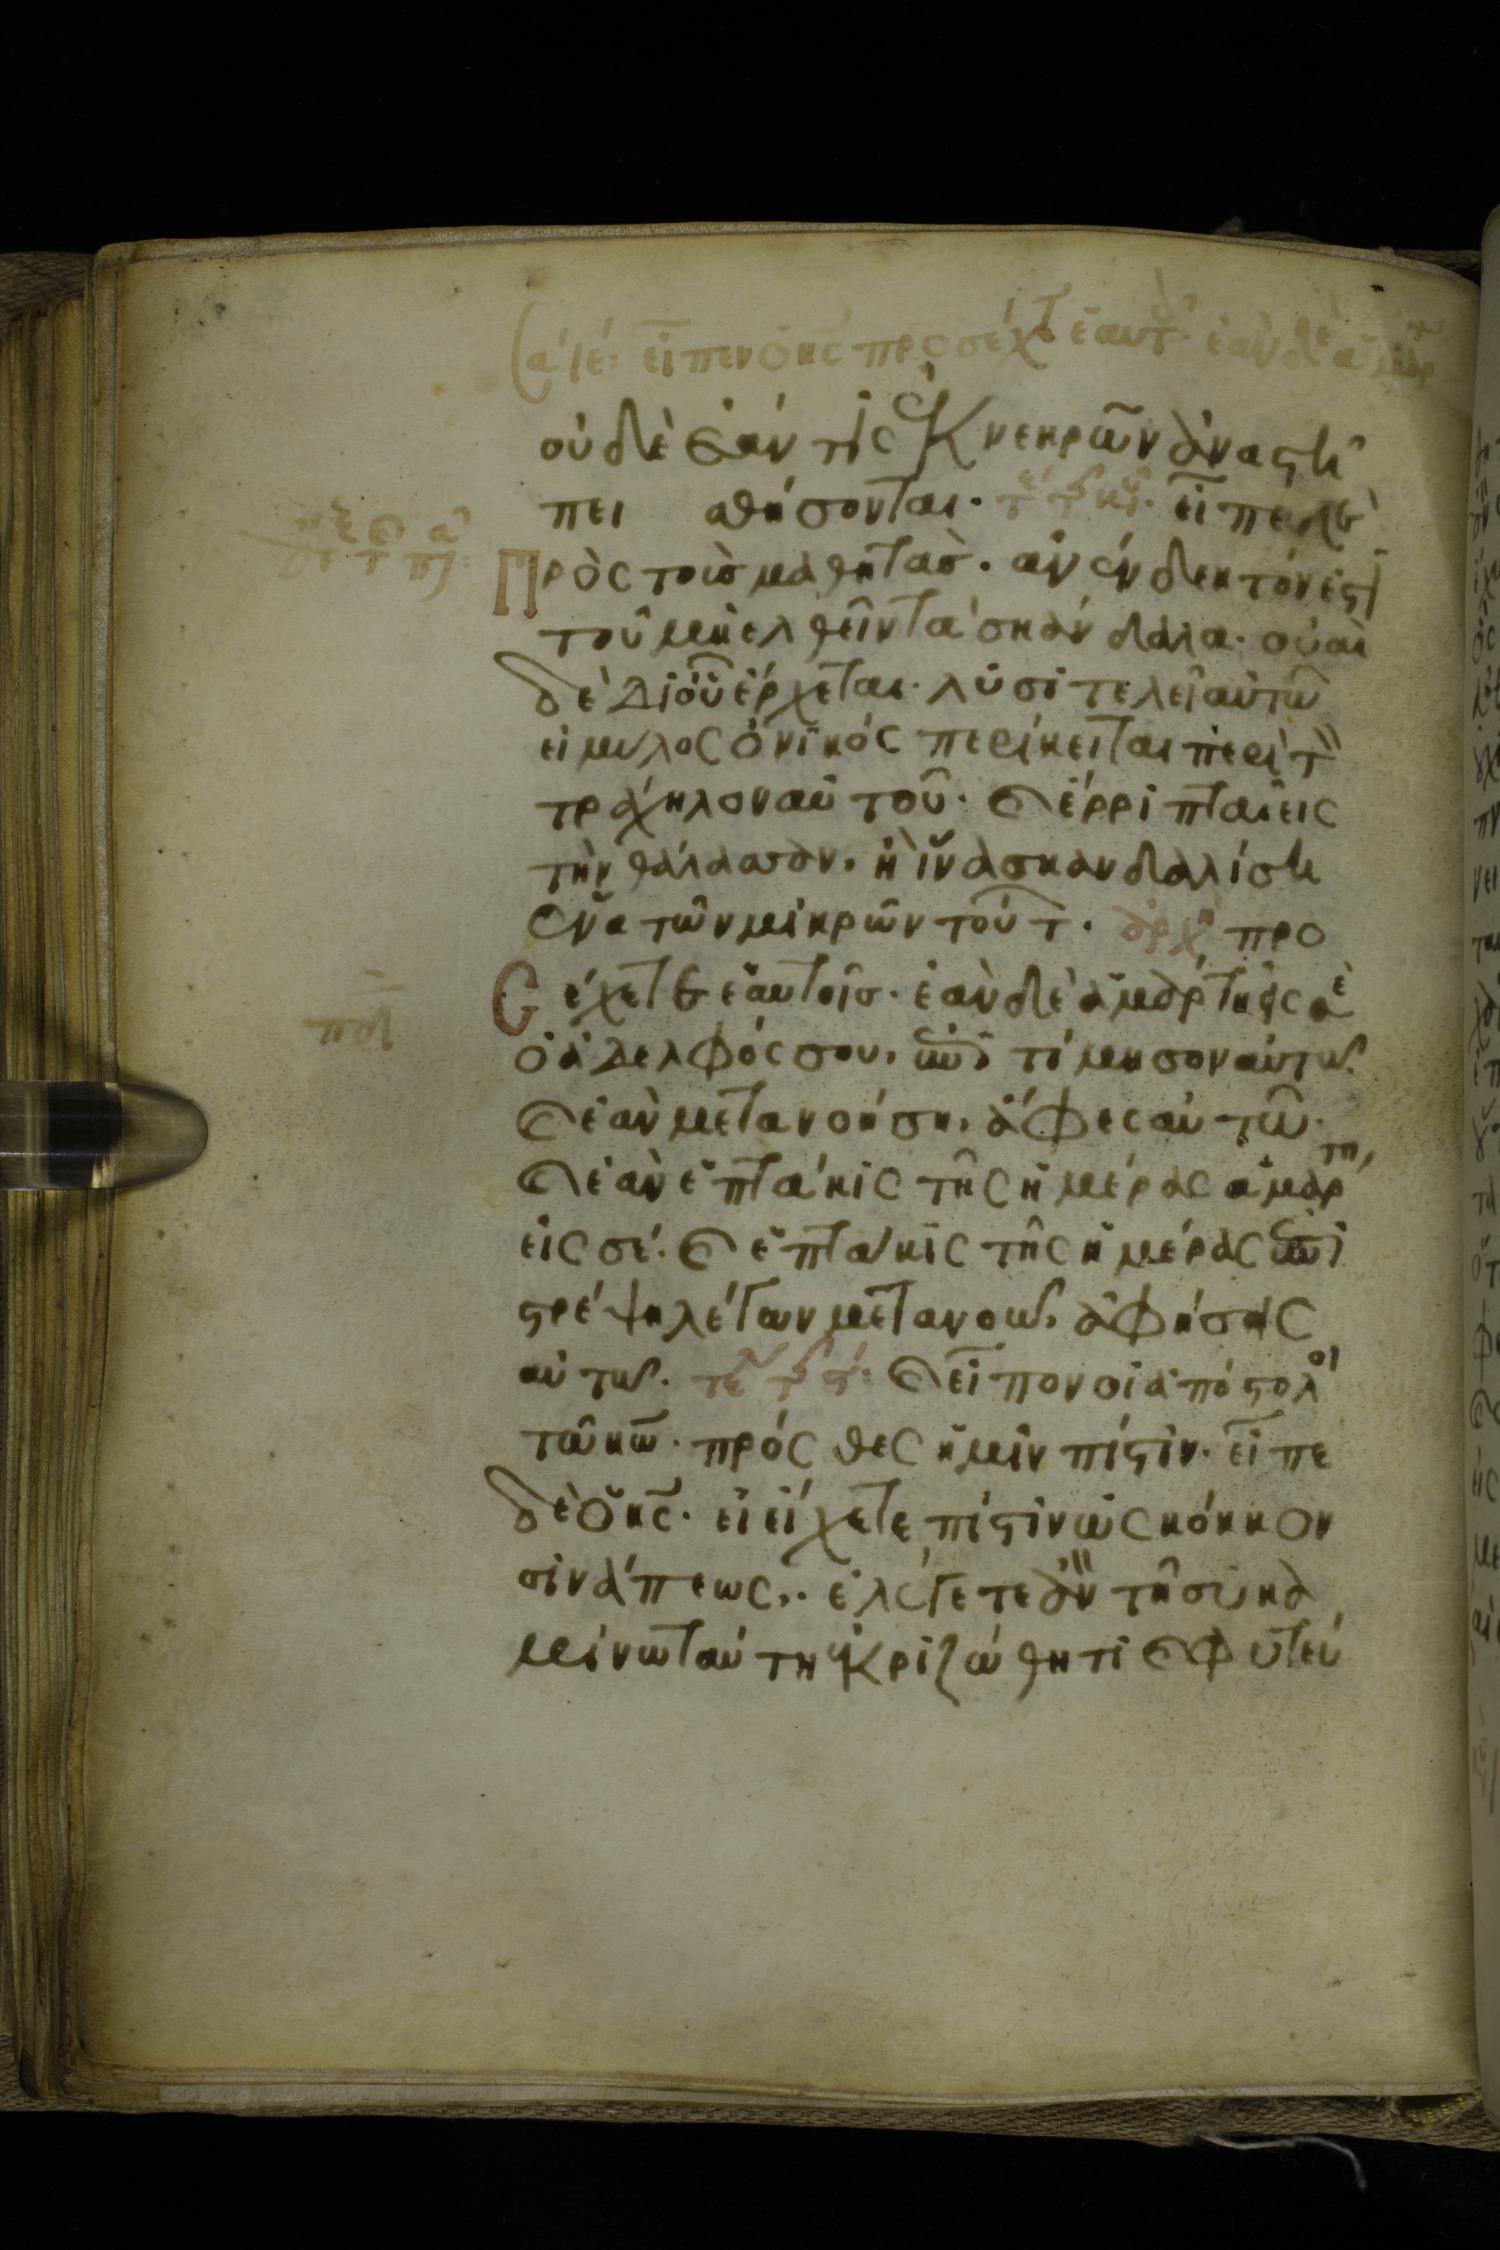 εἶπεν ὁ κς προσέχετε ἑαυτ ἐὰν δὲ ἁμαρ
οὐδὲ ἐάν τις ἐκ νεκρῶν ἀναστῆ
πει αθήσονται. εἶπε δὲ
Πρὸς τοὺς μαθητὰς. ἀνένδεκτόν ἐστι
τοῦ μὴ ελθεῖν τὰ σκάνδαλα. οὐαι
δὲ δι οὗ ἔρχεται. λυσιτελεῖ αὐτῶ
εἰ μυλος ὀνικός περίκειται περὶ τ
τράχηλον αὐτοῦ. καὶ ἔρριπται εις
τὴν θάλασσαν. ἢ ἵνα σκανδαλίση
ἕνα τῶν μικρῶν τούτ. ἀρχ προ
Σέχετε ἑαυτοῖς. ἐὰν δὲ ἁμάρτη εἰς σὲ
ὁ ἀδελφός σου, ἐπιτίμησον αὐτῶ
καὶ ἐὰν μετανοήση, ἄφες αὐτῶ.
καὶ ἐὰν ἑπτάκις τῆς ἡμέρας ἁμάρτη
εἰς σέ. καὶ ἑπτάκις τῆς ἡμέρας ἐπι
στρέψη λέγων μετανοῶ, ἀφήσης
αὐτῶ. καὶ εἶπον οἱ ἀπόστολοι
τῶ κω. πρόσθες ἡμῖν πίστιν. εἶπε
δὲ ὁ κς. εἰ εἴχετε πίστιν ὡς κόκκον
σινάπεως, ἐλέγετε ἂν τῆ συκα
μίνω ταύτη ἐκριζώθητι καὶ φυτεύ